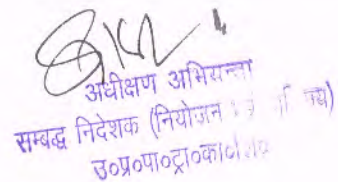 अधीक्षण अभियन्ता
सम्बद्ध निदेशक (नियोजन
उ०प्र०पा०ट्रा०का०